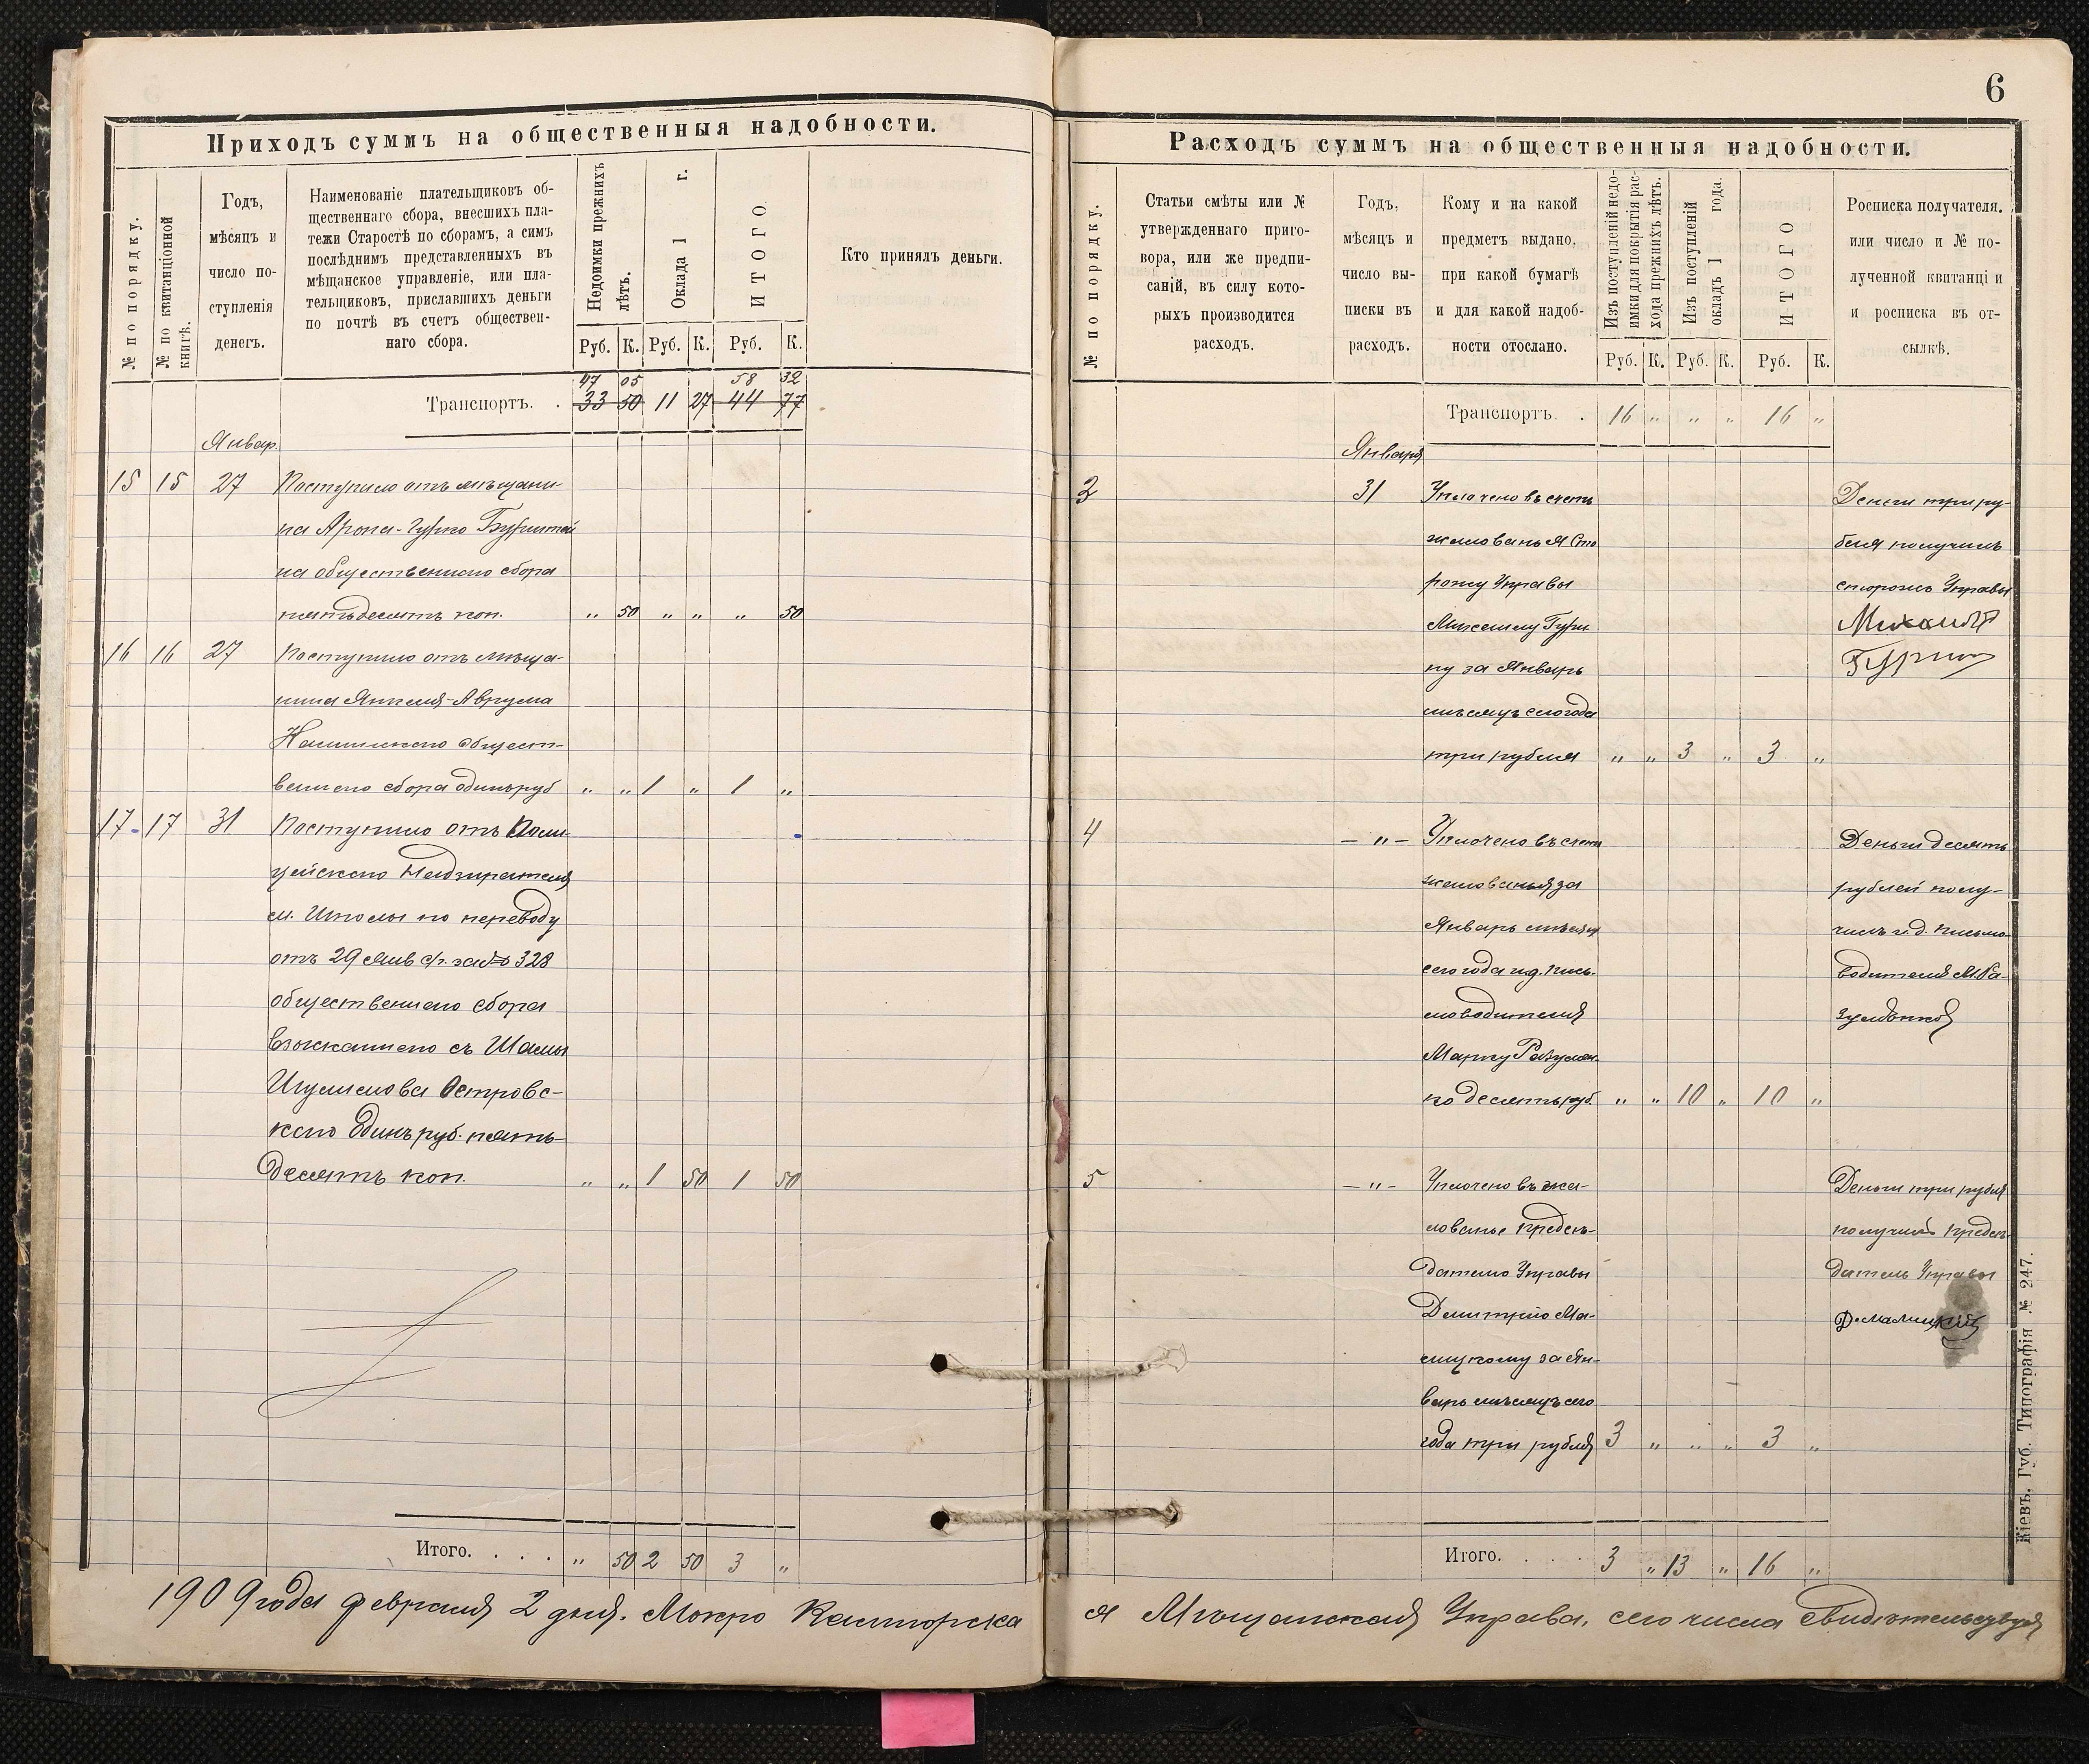 6
Приходъ суммъ на общественныя надобности.
№ по порядку.
№ по квитанціонной
книгѣ.
Годъ,
мѣсяцъ и
число по-
ступленія
денегъ.
Наименованіе плательщиковъ об-
щественнаго сбора, внесшихъ пла-
тежи Старостѣ по сборамъ, а симъ
послѣднимъ представленныхъ въ
мѣщанское управленіе, или пла-
тельщиковъ, приславшихъ деньги
по почтѣ въ счетъ обществен-
наго сбора.
Недоимки прежнихъ
лѣтъ.
Оклада 1 г.
ИТОГО
Кто принялъ деньги.
Руб. К. Руб. К. Руб. К.
47 05 58 32
Транспортъ. . 33 50 11 27 44 77
Январ.
15 15 27 Поступило отъ мѣщани-
на Арона-
на общественного сбора
пятьдесятъ коп. „ 50 „ „ „ 50
16 16 27 Поступило отъ мѣща-
нина Янкеля-Аврума
общест-
венного сбора одинъ руб „ „ 1 „ 1 „
17 17 31 Поступило отъ Поли-
цейского Надзирателя
м. Шполы по переводу
отъ 29 Янв с/г. за № 328
общественного сбора
взысканного съ
Островс-
кого Одинъ руб. пять-
десятъ коп. „ „ 1 50 1 50
Итого. . . . „ 50 2 50 3 „
1909 года февраля 2 дня. Мокро Калигорска
Расходъ суммъ на общественныя надобности.
№ по порядку.
Статьи смѣты или №
утвержденнаго приго-
вора, или же предпи-
саній, въ силу кото-
рыхъ производится
расходъ.
Годъ,
мѣсяцъ и
число вы-
писки въ
расходъ.
Кому и на какой
предметъ выдано,
при какой бумагѣ
и для какой надоб-
ности отослано.
Изъ поступленій недо-
имки для покрытія рас-
хода прежнихъ лѣтъ.
Изъ поступленій
окладъ 1 года.
ИТОГО
Росписка получателя.
или число и № по-
лученной квитанціи
и росписка въ от-
сылкѣ.
Руб. К. Руб. К. Руб. К.
Транспортъ. . 16 „ „ „ 16 „
Января
31 Уплочено въ счетъ
жалованья Сто
рожу Управы
Михаилу Гури
ну за Январь
мѣсяцъ сего года
три рубля „ „ 3 „ 3 „
Деньги три ру-
бля получилъ
сторожъ Управы
Михаилъ
Гурин
4 — „ — Уплочено въ счетъ
жалованья за
Январь мѣсяц
сего года и.д. пись-
моводителя
Марку Разумен-
ко десять руб. „ „ 10 „ 10 „
Деньги десять
рублей полу-
чилъ и.д. письмо-
водителя М. Ра-
зуменко
5 — „ — Уплочено въ жа-
лованье предсѣ-
дателю Управы
Дмитрію Ма-
лицкому за Ян-
варь мѣсяцъ сего
года три рубля 3 „ „ „ 3 „
Деньги три рубля
получилъ предсѣ-
датель Управы
Д. Малицкій
Итого. . . . 3 „ 13 „ 16 „
я Мѣщанская Управа, сего числа свидѣтельствуя
Кіевъ, Губ. Типографія № 247.